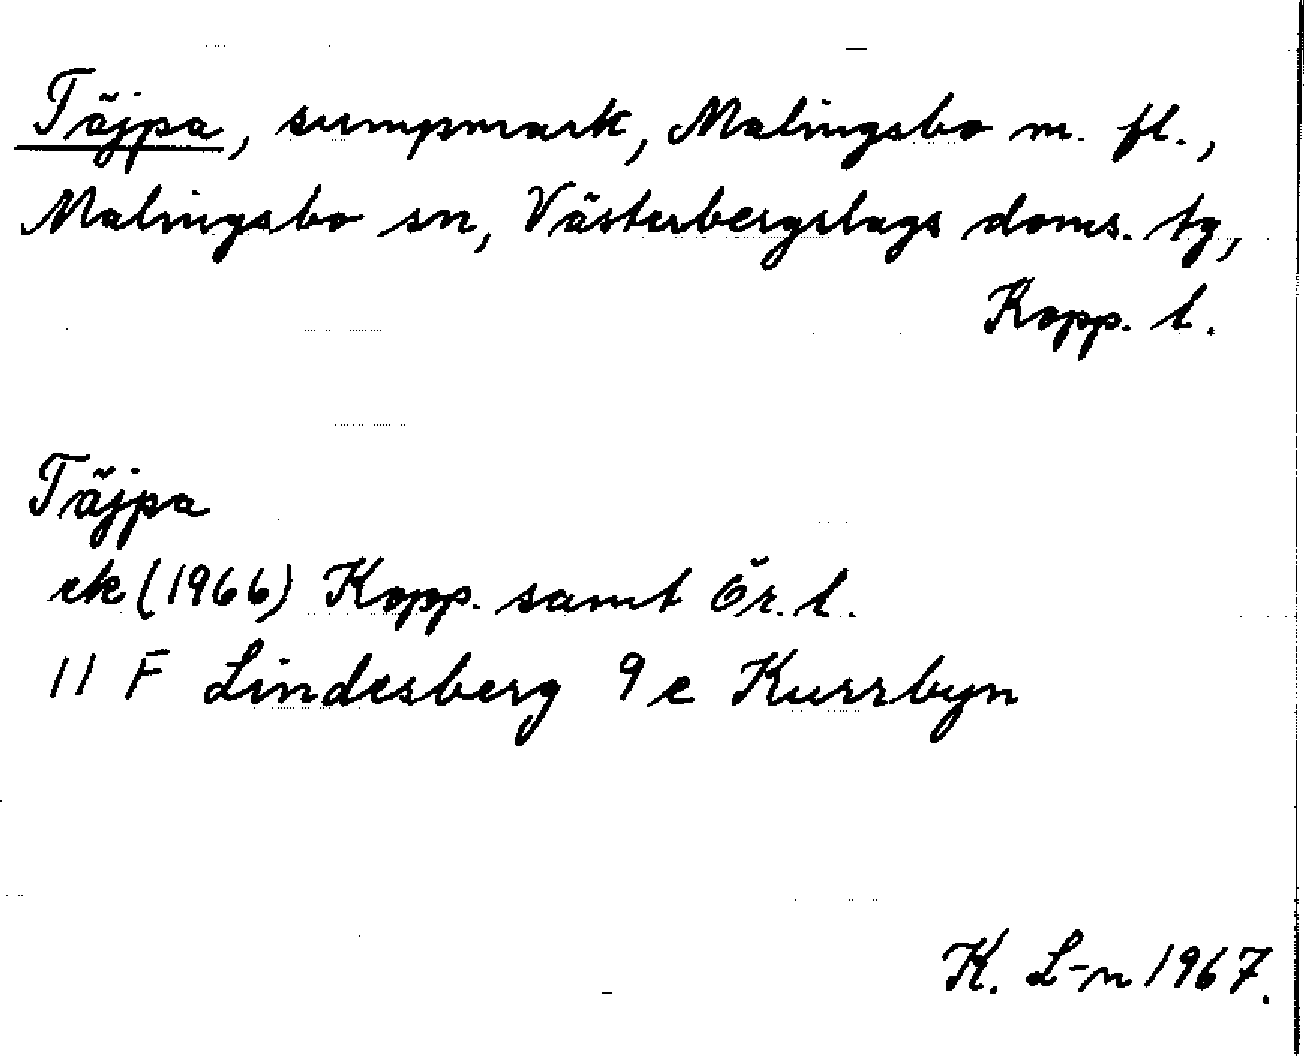 Täjpa, sumpmark, Malingsbo m. fl.,
Malingsbo sn, Västerbergslags doms. tg,
Kopp. l.
Täjpa
ek (1966) Kopp. samt Ör. l.
11 F Lindesberg 9 e Kurrbyn
K. L-n 1967.